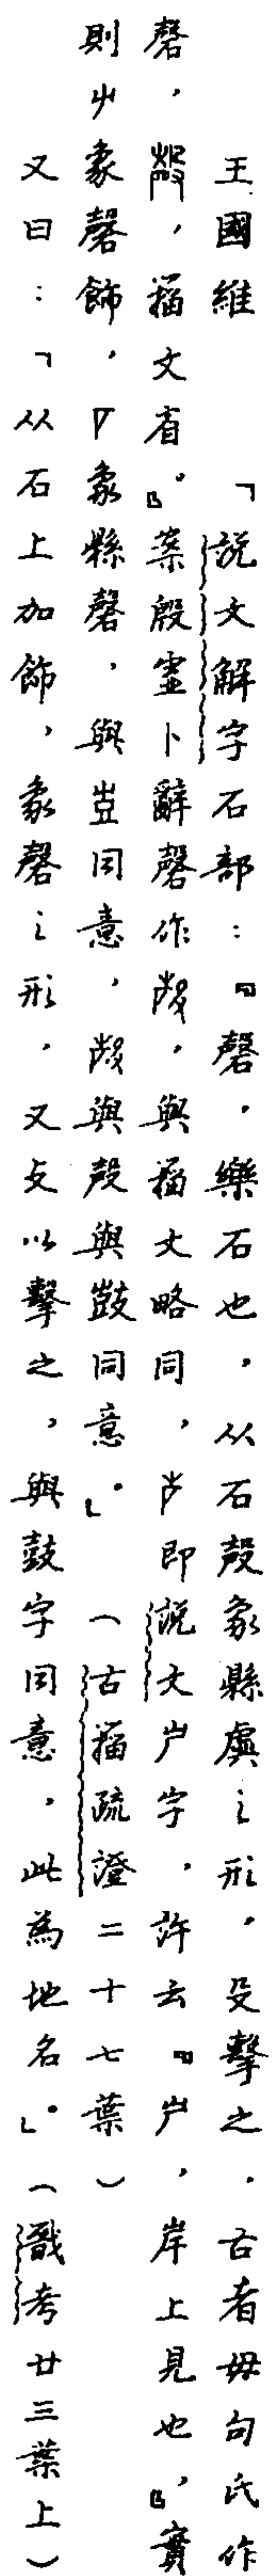 王國維　「說文解字石部：『磬，樂石也，从石殸象縣虡之形，殳擊之，古者毋句氏作
磬，殸，籀文省』。案殷虛卜辭磬作𣪊，與籀文略同，声即說文屵字，許云『屵，岸上見也』，實
則屮象磬飾，象縣磬，與豈同意，與殸與鼓同意」。（古籀疏證二十七葉）
又曰：「从石上加飾，象磬之形，又攴以擊之，與鼓字同意，此為地名」。（戩考廿三葉上）